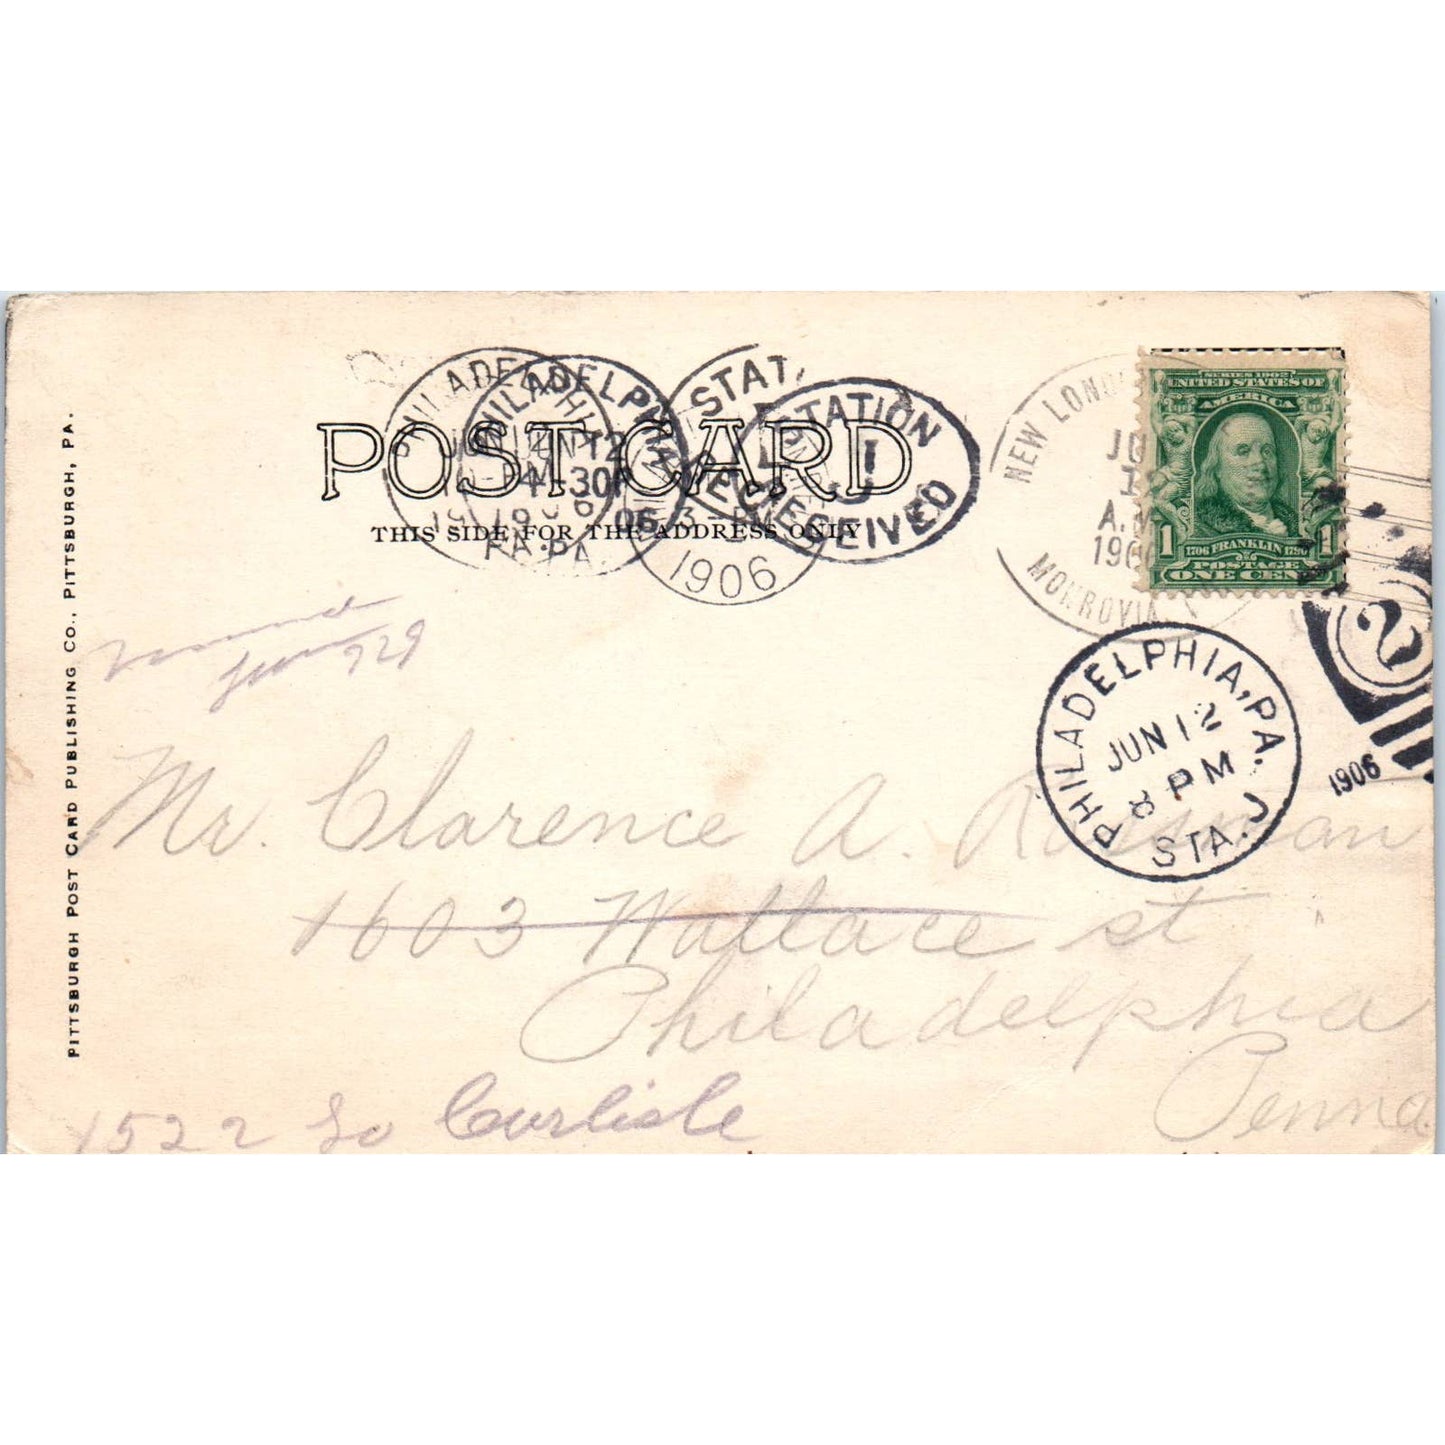 POST CARD
THIS SIDE FOR THE ADDRESS ONLY
PITTSBURGH POST CARD PUBLISHING CO., PITTSBURGH, PA.
PHILADELPHIA
PA.
PHILADELPHIA
JUN 12
4-30P
06
PA.
STAT
3-PM
1906
STATION
J
RECEIVED
NEW LOND
JU
12
A.M
190
MONROVIA
SERIES 1902
UNITED STATES OF
AMERICA
1706 FRANKLIN 1790
POSTAGE
1 ONE CENT 1
2
PHILADELPHIA, PA.
JUN 12
8 PM
STA. J
1906
729
Mr. Clarence A.
1603 Wallace st
Philadelphia
Penna
1522 So Carlisle